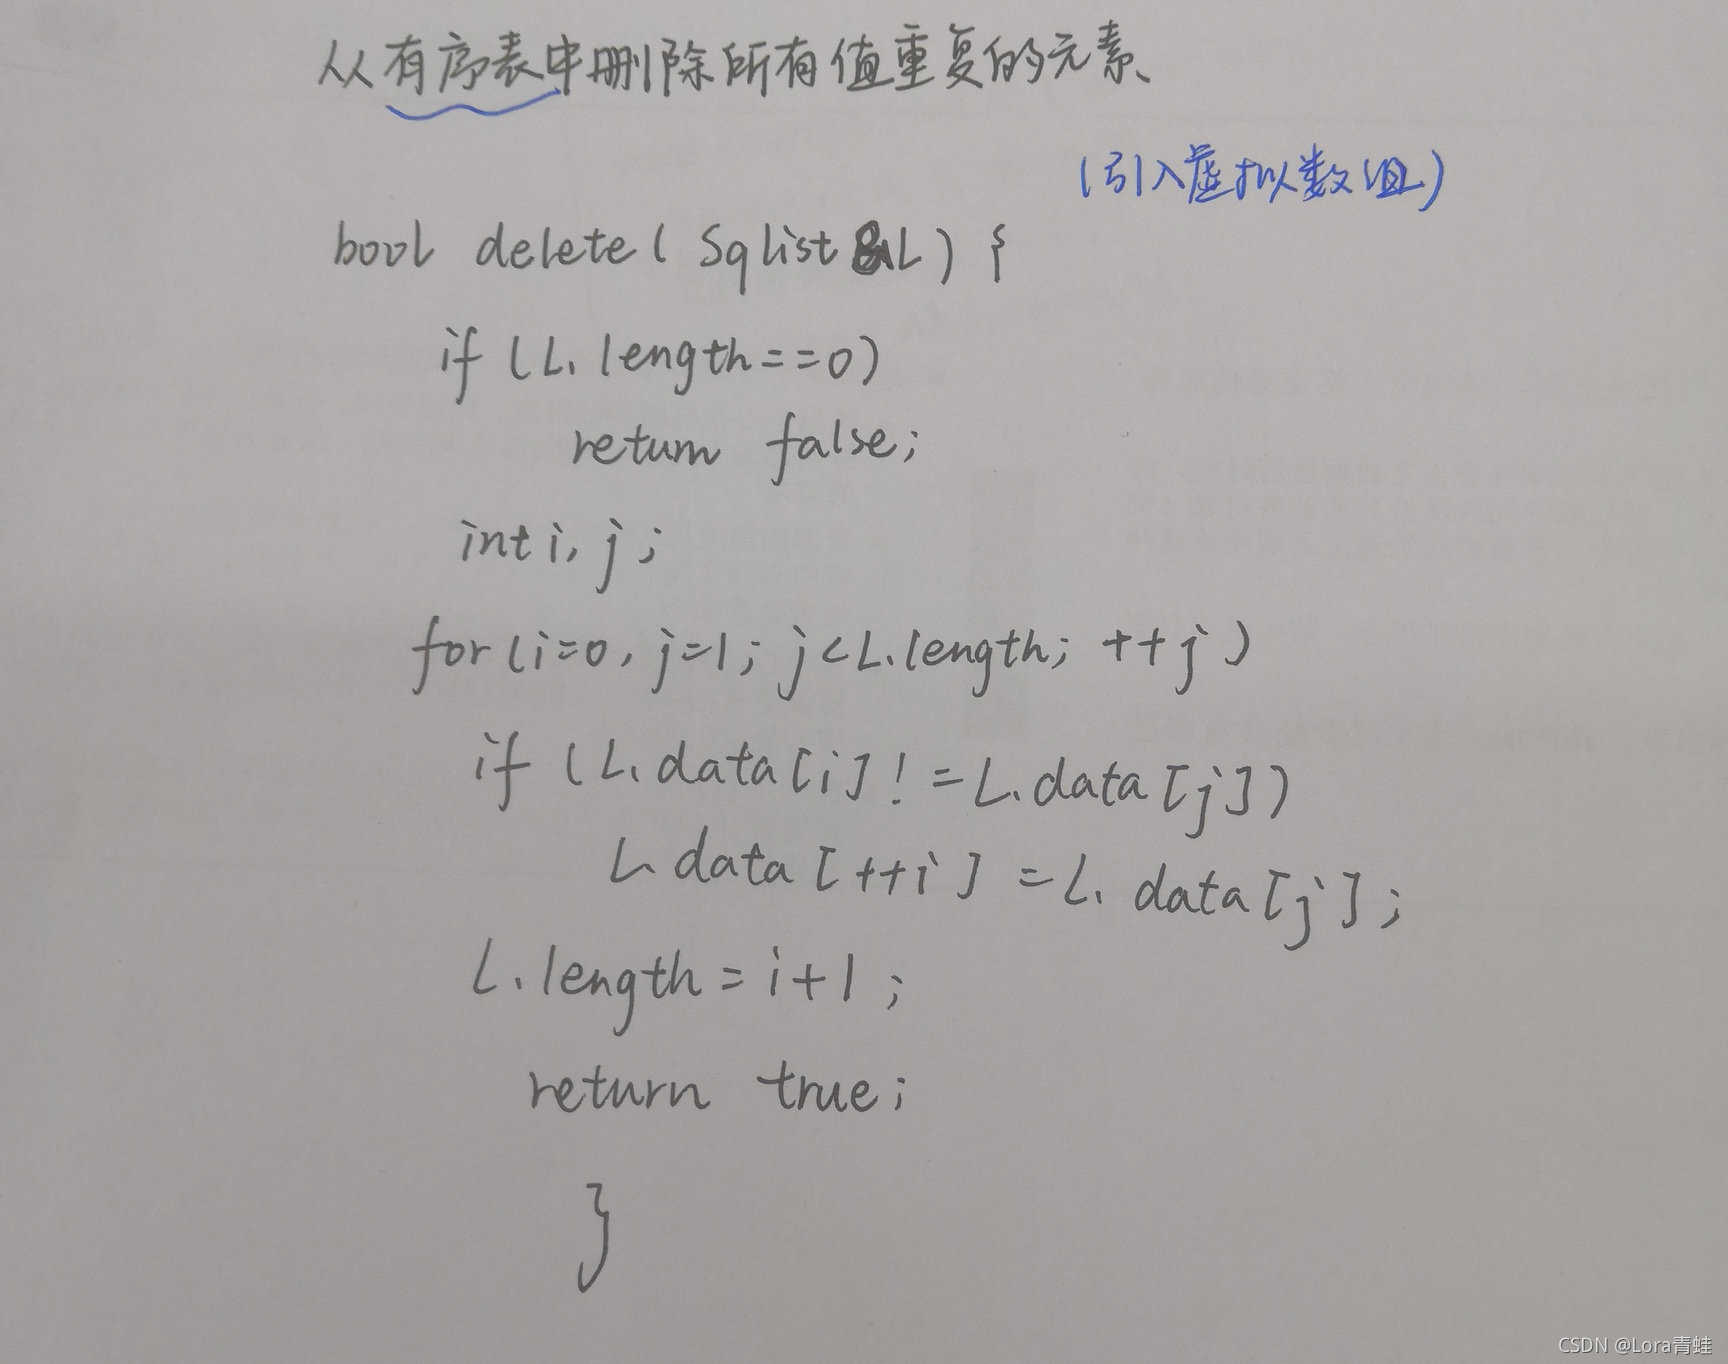 从有序表中删除所有值重复的元素、
(引入虚拟数组)
bool delete( Sqlist &L) {
if (L.length==0)
return false;
int i, j;
for(i=0, j=1; j<L.length; ++j)
if (L.data[i]!=L.data[j])
L.data[++i]=L.data[j];
L.length=i+1;
return true;
}
CSDN @Lora青蛙